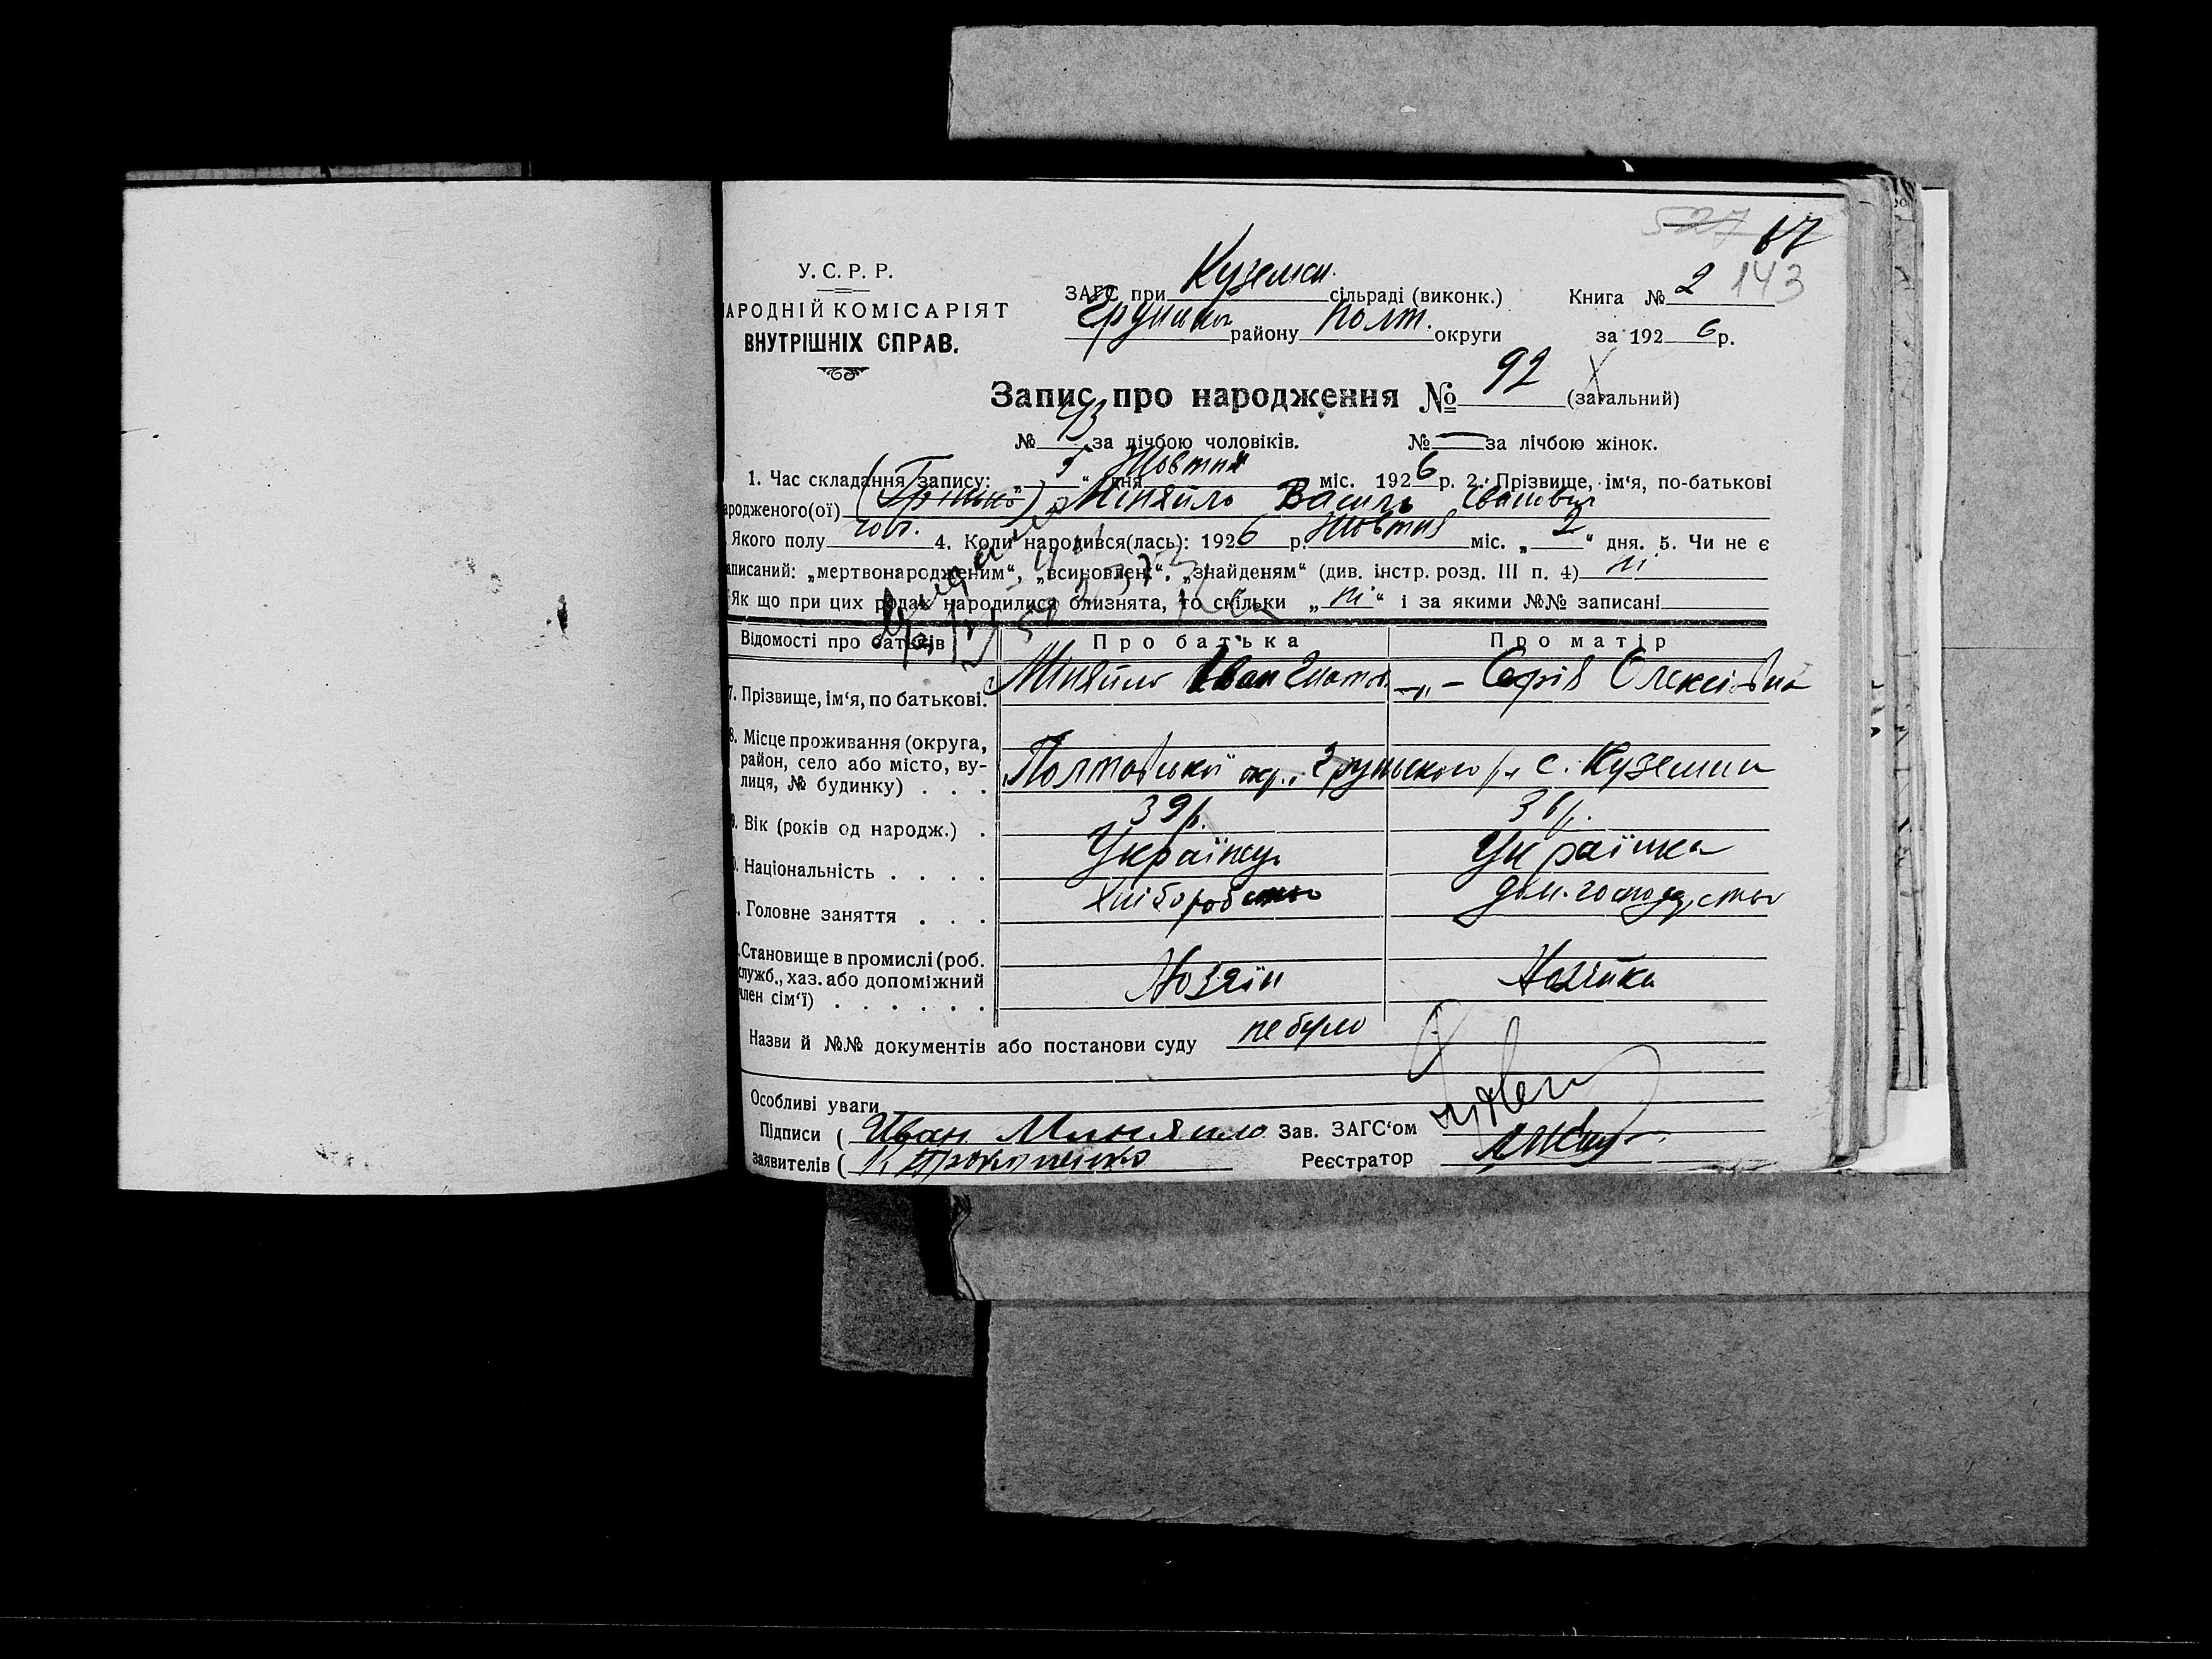 527 67
У. С. Р. Р.
АРОДНІЙ КОМІСАРІЯТ
ВНУТРІШНІХ СПРАВ.
ЗАГС при Куземин. сільраді (виконк.) Книга № 2 143
району Полт. округи за 1926 р.
Запис про народження № 92 (загальний)
№ за лічбою чоловіків. № — за лічбою жінок.
1. Час складання запису: „5“ дня Жовтня міс. 1926 р. 2. Прізвище, ім‘я, по-батькові
ародженого(ої) Міняйло Василь Іванович
Якого полу чол. 4. Коли народився(лась): 1926 р. Жовтня міс. „2“ дня. 5. Чи не є
аписаний: „мертвонародженим“, „всиновлен.“, „знайденям“ (див. інстр. розд. III п. 4) ні
Як що при цих родах народилися близнята, то скільки „ні“ і за якими №№ записані
Відомості про батьків Про батька Про матір
7. Прізвище, ім‘я, по батькові. Міняйло Іван -„- Софія Олексіївна
8. Місце проживання (округа,
район, село або місто, ву-
лиця, № будинку) . . . Полтавської окр., Грунського р., с. Куземин
9. Вік (років од народж.) . 39 р. 36 р.
Національність . . . . Українец Українка
Головне заняття . . . Хліборобство дом. господарство
Становище в промислі (роб.
служб., хаз. або допоміжний
член сім‘ї) . . . . . . Хозяїн Хозяйка
Назви й №№ документів або постанови суду не було
Особливі уваги
Підписи ( Иван Миняйло Зав. ЗАГС‘ом
заявителів ( Прокопенко Реєстратор